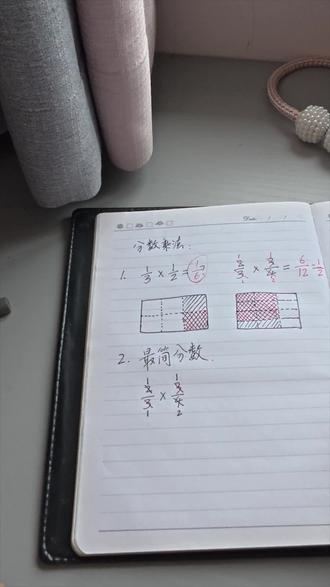 Date: / /
分数乘法:
1. 1/3 × 1/2 = 1/6 2/3 × 3/4 = 6/12 = 1/2
2. 最简分数.
2/3 × 3/4